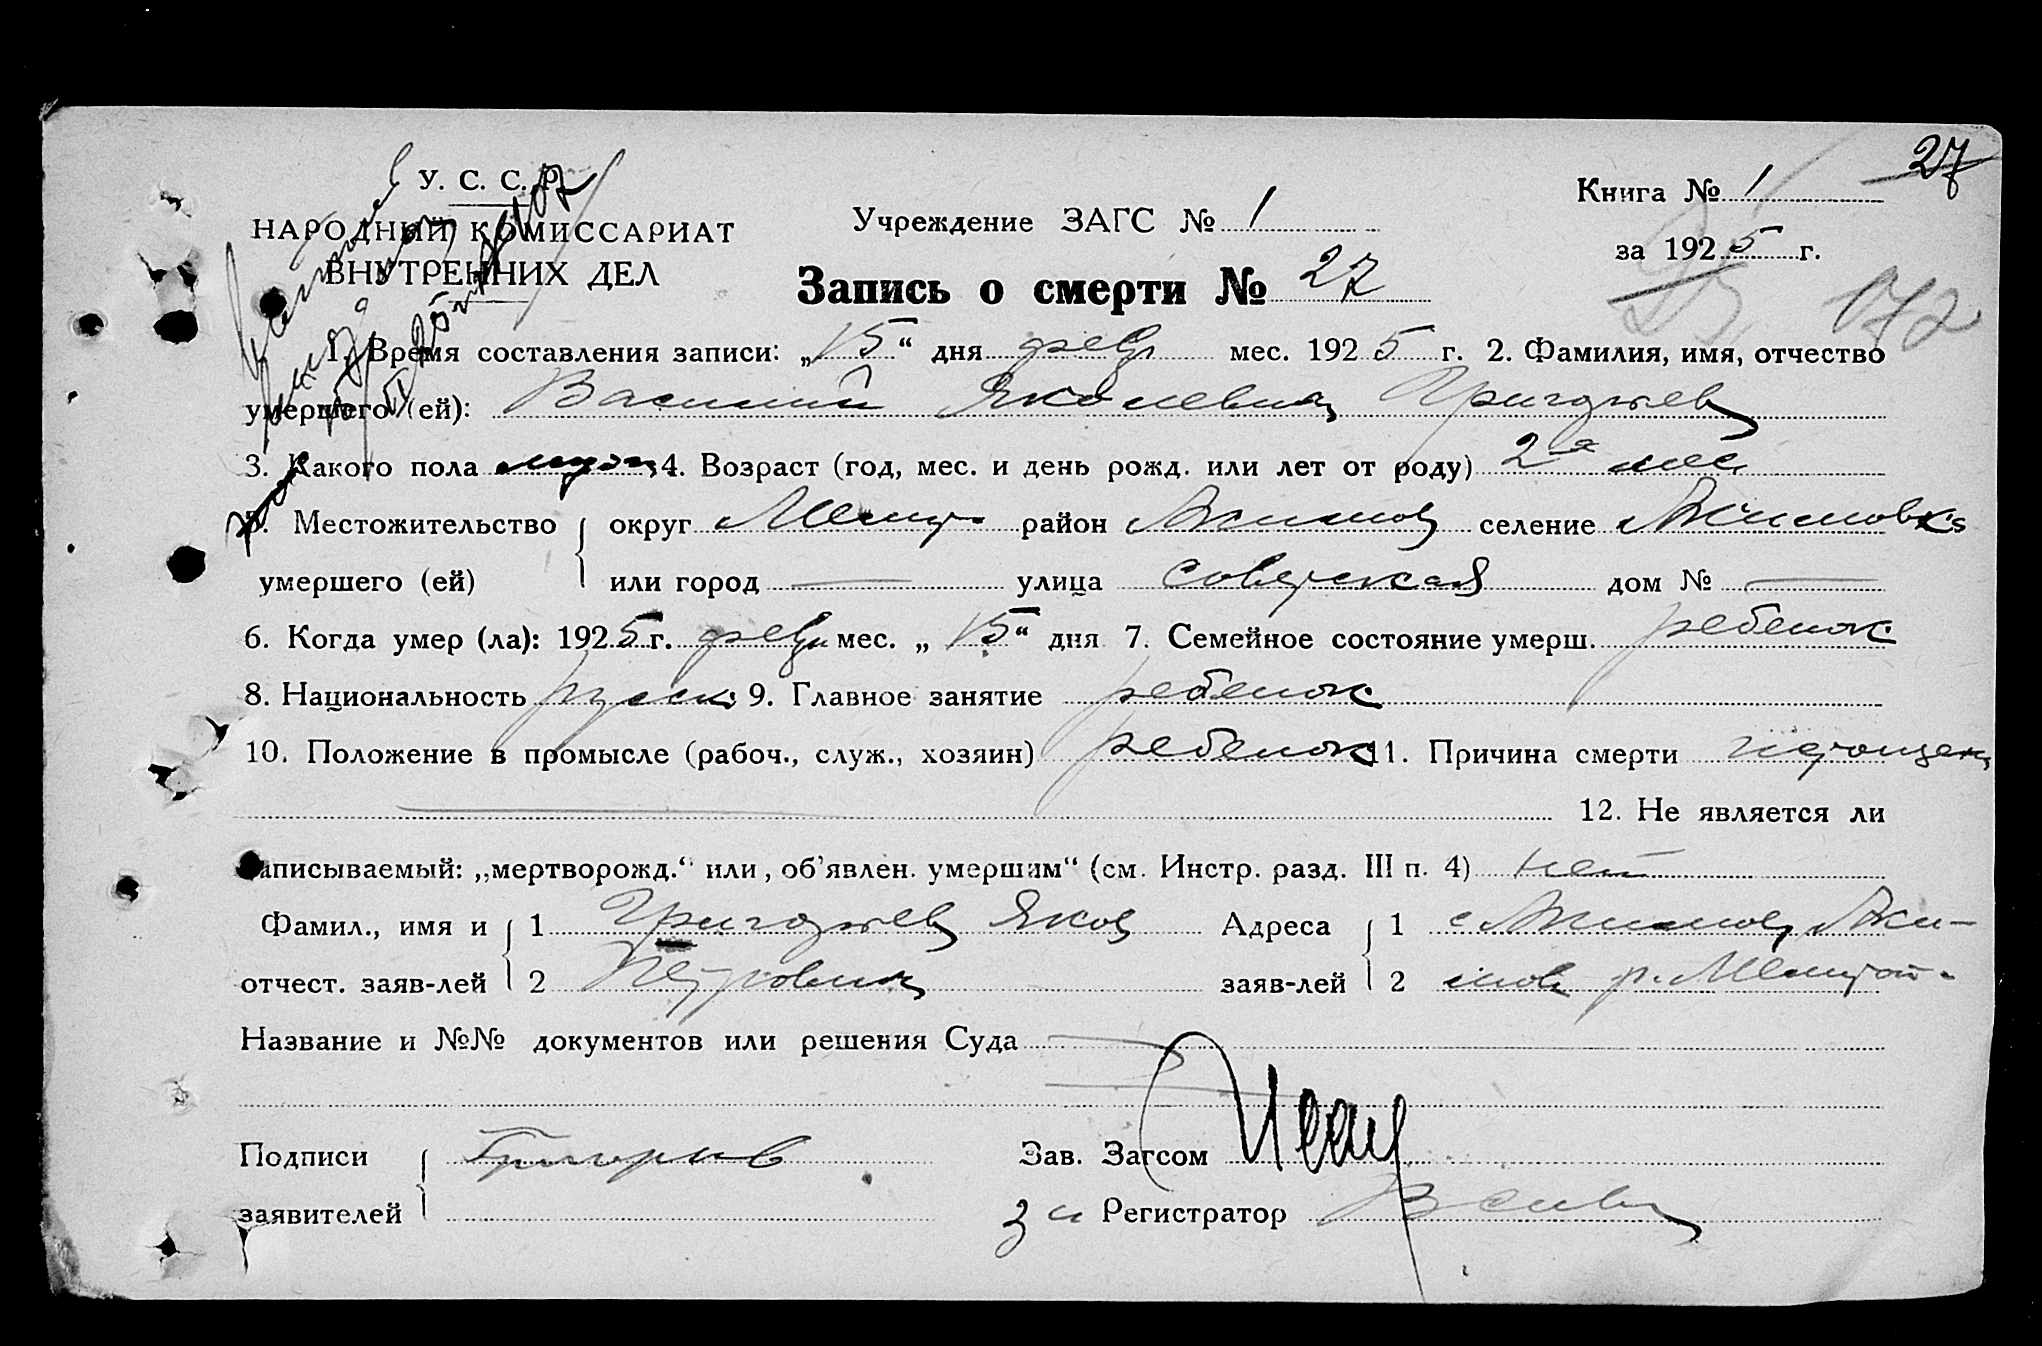 27
У. С. С. Р.
НАРОДНЫЙ КОМИССАРИАТ
ВНУТРЕННИХ ДЕЛ
Учреждение ЗАГС № 1
Книга № 1
за 1925 г.
Запись о смерти № 27
1. Время составления записи: „15“ дня февр мес. 1925 г. 2. Фамилия, имя, отчество
умершего (ей): Василий Яковлевич
3. Какого пола муж. 4. Возраст (год, мес. и день рожд. или лет от роду) 2а мес
5. Местожительство округ Мелит район Акимов селение Акимовка
умершего (ей) или город — улица советская дом № —
6. Когда умер (ла): 1925 г. февр мес. „15“ дня 7. Семейное состояние умерш. ребенок
8. Национальность русск. 9. Главное занятие ребенок
10. Положение в промысле (рабоч., служ., хозяин) ребенок 11. Причина смерти
12. Не является ли
записываемый: „мертворожд.“ или „об’явлен. умершим“ (см. Инстр. разд. III п. 4) нет
Фамил., имя и 1 Яков Адреса 1 с Акимов, Аки-
отчест. заяв-лей 2 Петрович заяв-лей 2 мов р. Мелитоп.
Название и №№ документов или решения Суда
Подписи Зав. Загсом
заявителей за Регистратор